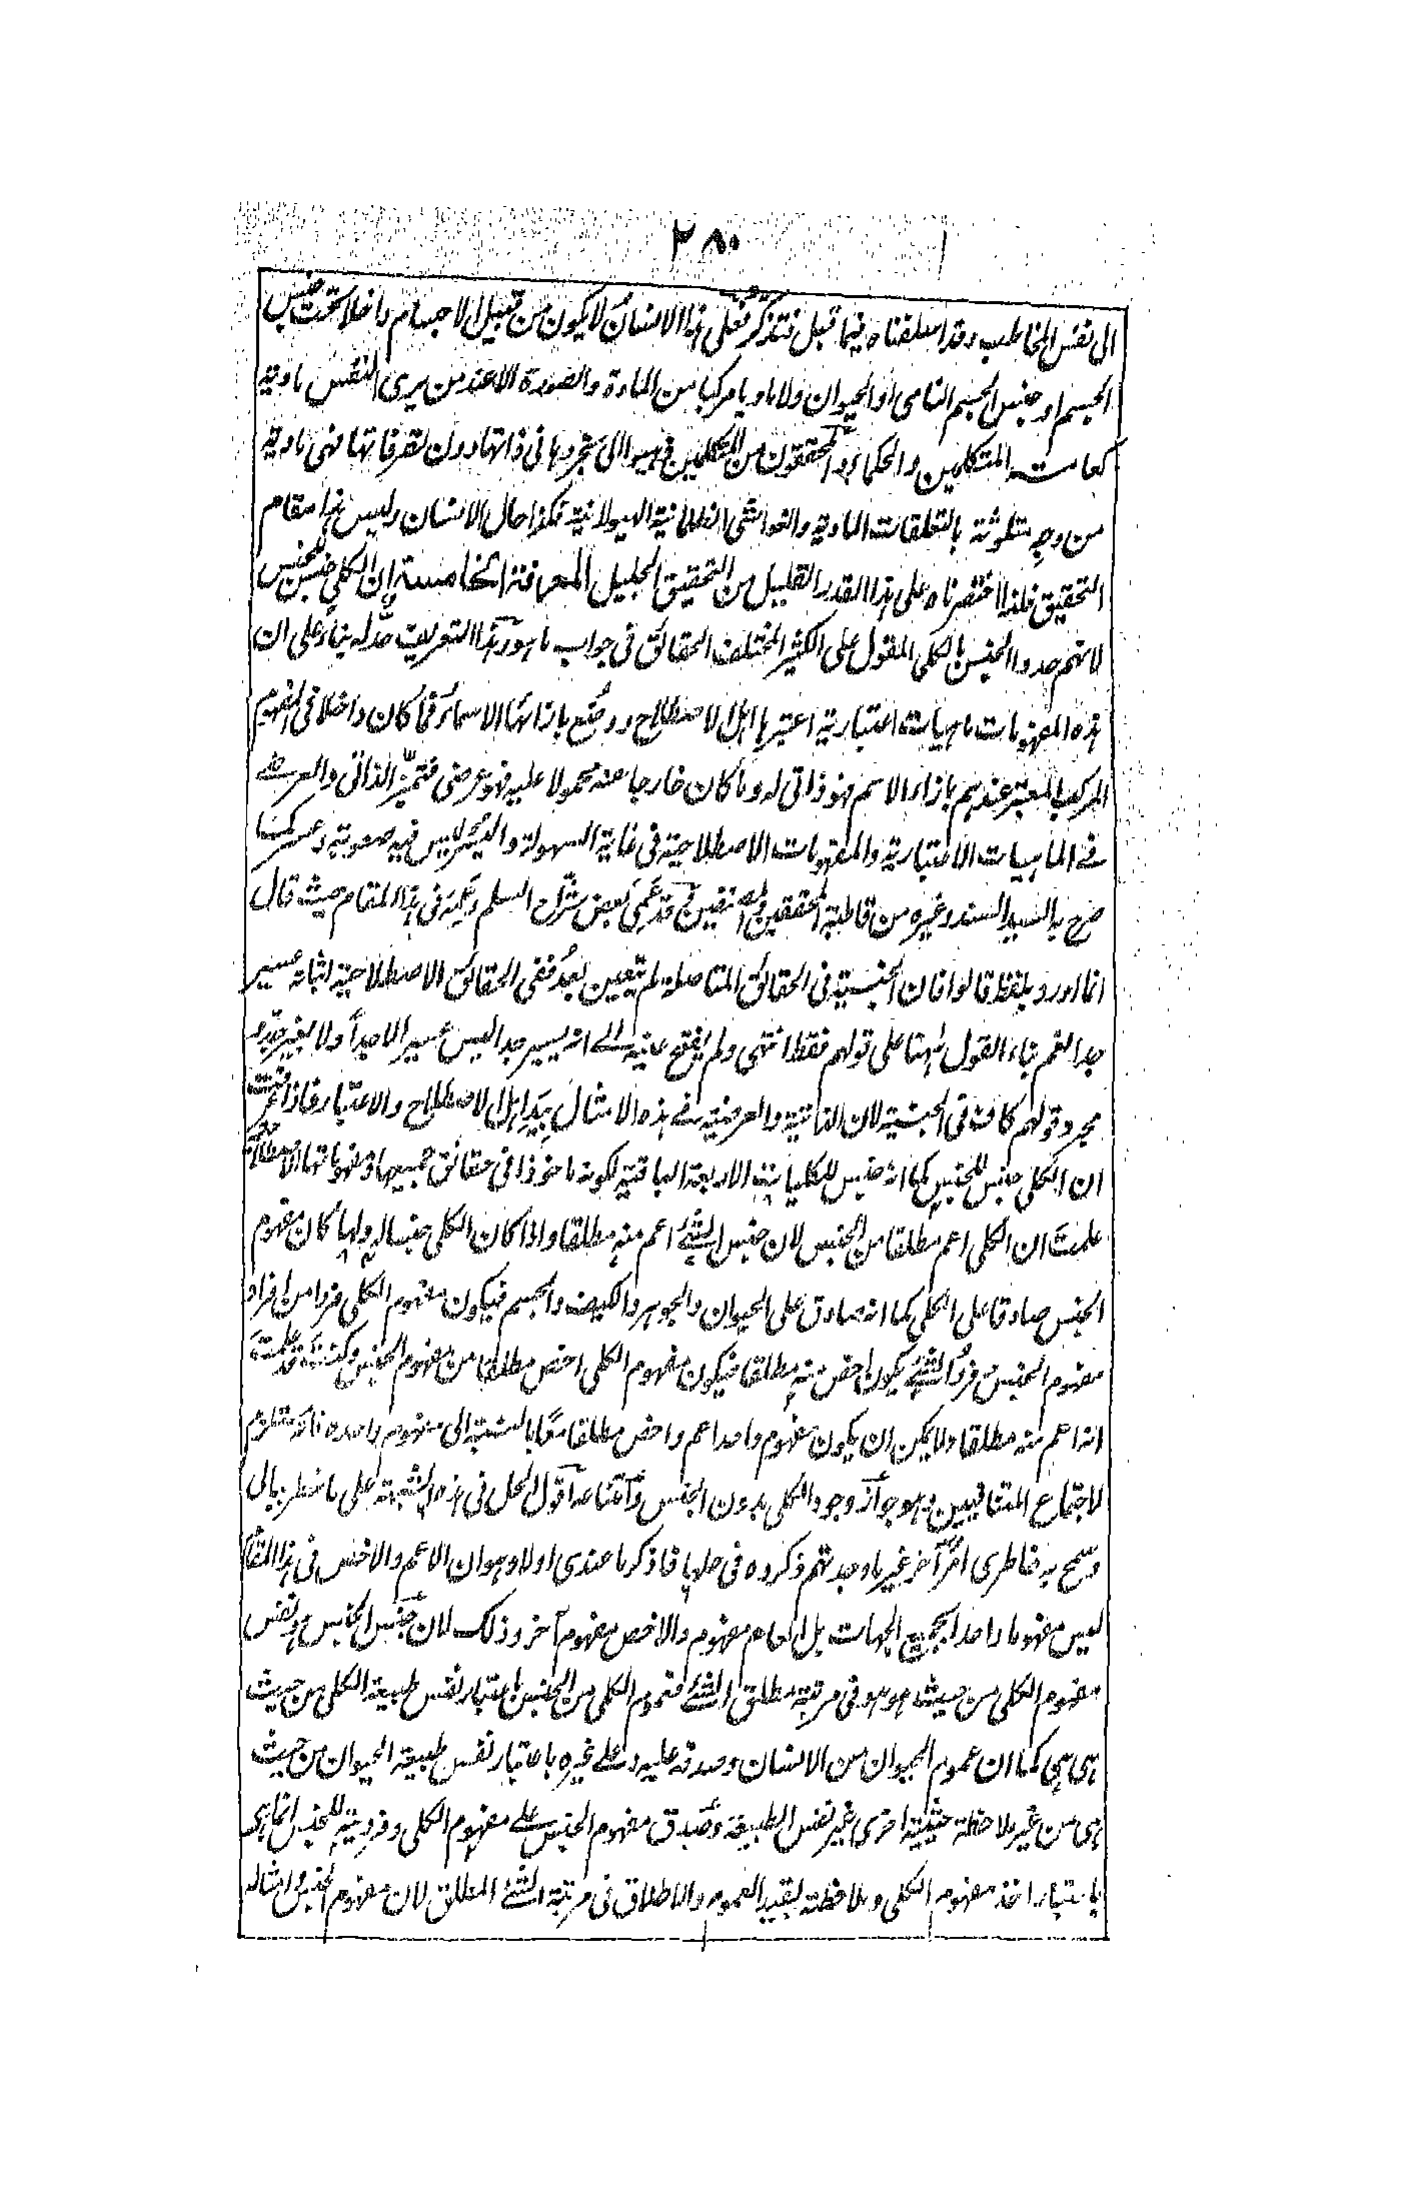 ٢٨٠
الى نفس المخاطب وقد اسلفناه فيما قبل فتذكر فعلى هذا الانسان لا يكون من قبيل الاجسام داخلا تحت جنس
الجسم او جنس الجسم النامى او الحيوان ولا ماديا مركبا من المادة والصورة الا عند من يرى النفس مادية
كعامة المتكلمين والحكماء والمحققون من المتكلمين ذهبوا الى تجردها فى ذاتها دون تصرفاتها فهى مادية
من وجه متلوثة بالتعلقات المادية والغواشى الظلمانية الهيولانية فكذا حال الانسان وليس هذا مقام
التحقيق فلذا اختصرناه على هذا القدر القليل من التحقيق الجليل المعرفة الخامسة ان الكلى جنس للجنس
لانهم حدوا الجنس بالكلى المقول على الكثير المختلف الحقائق فى جواب ما هو وهذا التعريف حد له بناء على ان
هذه المفهومات ماهيات اعتبارية اعتبرها اهل الاصطلاح ووضع بازائها الاسماء فما كان داخلا فى المفهوم
المركب المعتبر عندهم بازاء الاسم فهو ذاتى له وما كان خارجا عنه محمولا عليه فهو عرضى فتميز الذاتى والعرضے
فے الماهيات الاعتبارية والمفهومات الاصطلاحية فى غاية السهولة واليسر ليس فيه صعوبة وعسر كما
صرح به السيد السند وغيره من قاطبة المحققين والمصنفين قد عمى بعض شراح السلم وغيره فى هذا المقام حيث قال
انما اورد بلفظ قالوا فان الجنسية فى الحقائق المتاصلة لم يتعين بعد ففى الحقائق الاصطلاحية اثباته عسير
جدا نعم بناء القول ههنا على قولهم فقط انتهى ولم يفتح عينيه الے انه يسير جدا ليس عسيرا لا جدا ولا بغير جد بل
مجرد قولهم كاف فى الجنسية لان الذاتية والعرضية فے هذه الامثال بيد اهل الاصطلاح والاعتبار فاذا عرفت
ان الكلى جنس للجنس كما انه جنس للكليات الاربعة الباقية لكونه ماخوذا فى حقائق جميعها ومفهوماتها الاصطلاحية
علمت ان الكلى اعم مطلقا من الجنس لان جنس الشئ اعم منه مطلقا واذا كان الكلى جنسا له ولها كان مفهوم
الجنس صادقا على الكلى كما انه صادق على الحيوان والجوهر والكيف والجسم فيكون مفهوم الكلى فردا من افراد
مفهوم الجنس وفرد الشئ يكون اخص منه مطلقا فيكون مفهوم الكلى اخص مطلقا من مفهوم الجنس وكنت قد علمت
انه اعم منه مطلقا ولا يمكن ان يكون مفهوم واحد اعم واخص مطلقا معا بالنسبة الى مفهوم واحد فانه مستلزم
لاجتماع المتنافيين وهو جواز وجود الكلى بدون الجنس وامتناعه اقول الحل فى هذه الشبهة على ما خطر ببالى
وسنح به خاطرى امر آخر غير ما وجدتهم ذكروه فى حلها فاذكر ما عندى اولا وهو ان الاعم والاخص فى هذا المقام
ليس مفهوما واحدا بجميع الجهات بل العام مفهوم والاخص مفهوم آخر وذلك لان جنس الجنس هو نفس
مفهوم الكلى من حيث هو هو فى مرتبة مطلق الشئ فعموم الكلى من الجنس باعتبار نفس طبيعة الكلى من حيث
هى هى كما ان عموم الحيوان من الانسان وصدقه عليه وعلے غيره باعتبار نفس طبيعة الحيوان من حيث
هى من غير ملاحظة حيثية اخرى غير نفس الطبيعة وصدق مفهوم الجنس علے مفهوم الكلى وفرديته للجنس انما هى
باعتبار اخذ مفهوم الكلى وملاحظته بقيد العموم والاطلاق فى مرتبة الشئ المطلق لان مفهوم الجنس وامثاله